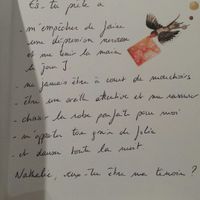 Es-tu prête à
- m'empêcher de faire
une dépression nerveuse
et me tenir la main
le jour J
- ne jamais être à court de mouchoirs
- être une oreille attentive et me rassurer
- choisir la robe parfaite pour moi
- m'apporter ton grain de folie
- et danser toute la nuit
Nathalie, veux-tu être ma témoin ?